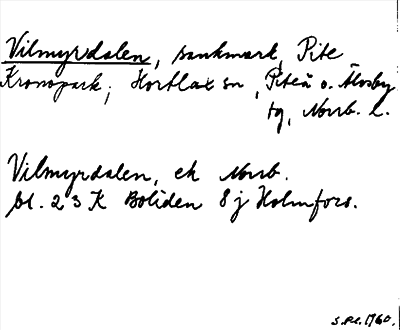 Vilmyrdalen, sankmark, Pite
Kronopark; Hortlax sn, Piteå o. Älvsby
tg, Norrb. l.
Vilmyrdalen, ek Norrb.
bl. 23 K Boliden 8 j Holmfors.
1960.